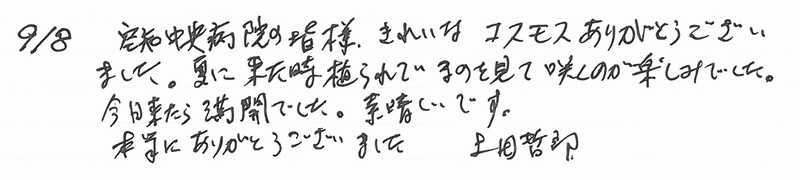 9/8 空知中央病院の皆様、きれいな コスモスありがとうござい
ました。夏に来た時植られているのを見て咲くのが楽しみでした。
今日来たら満開でした。素晴しいです。
本当にありがとうございました 土田哲郎